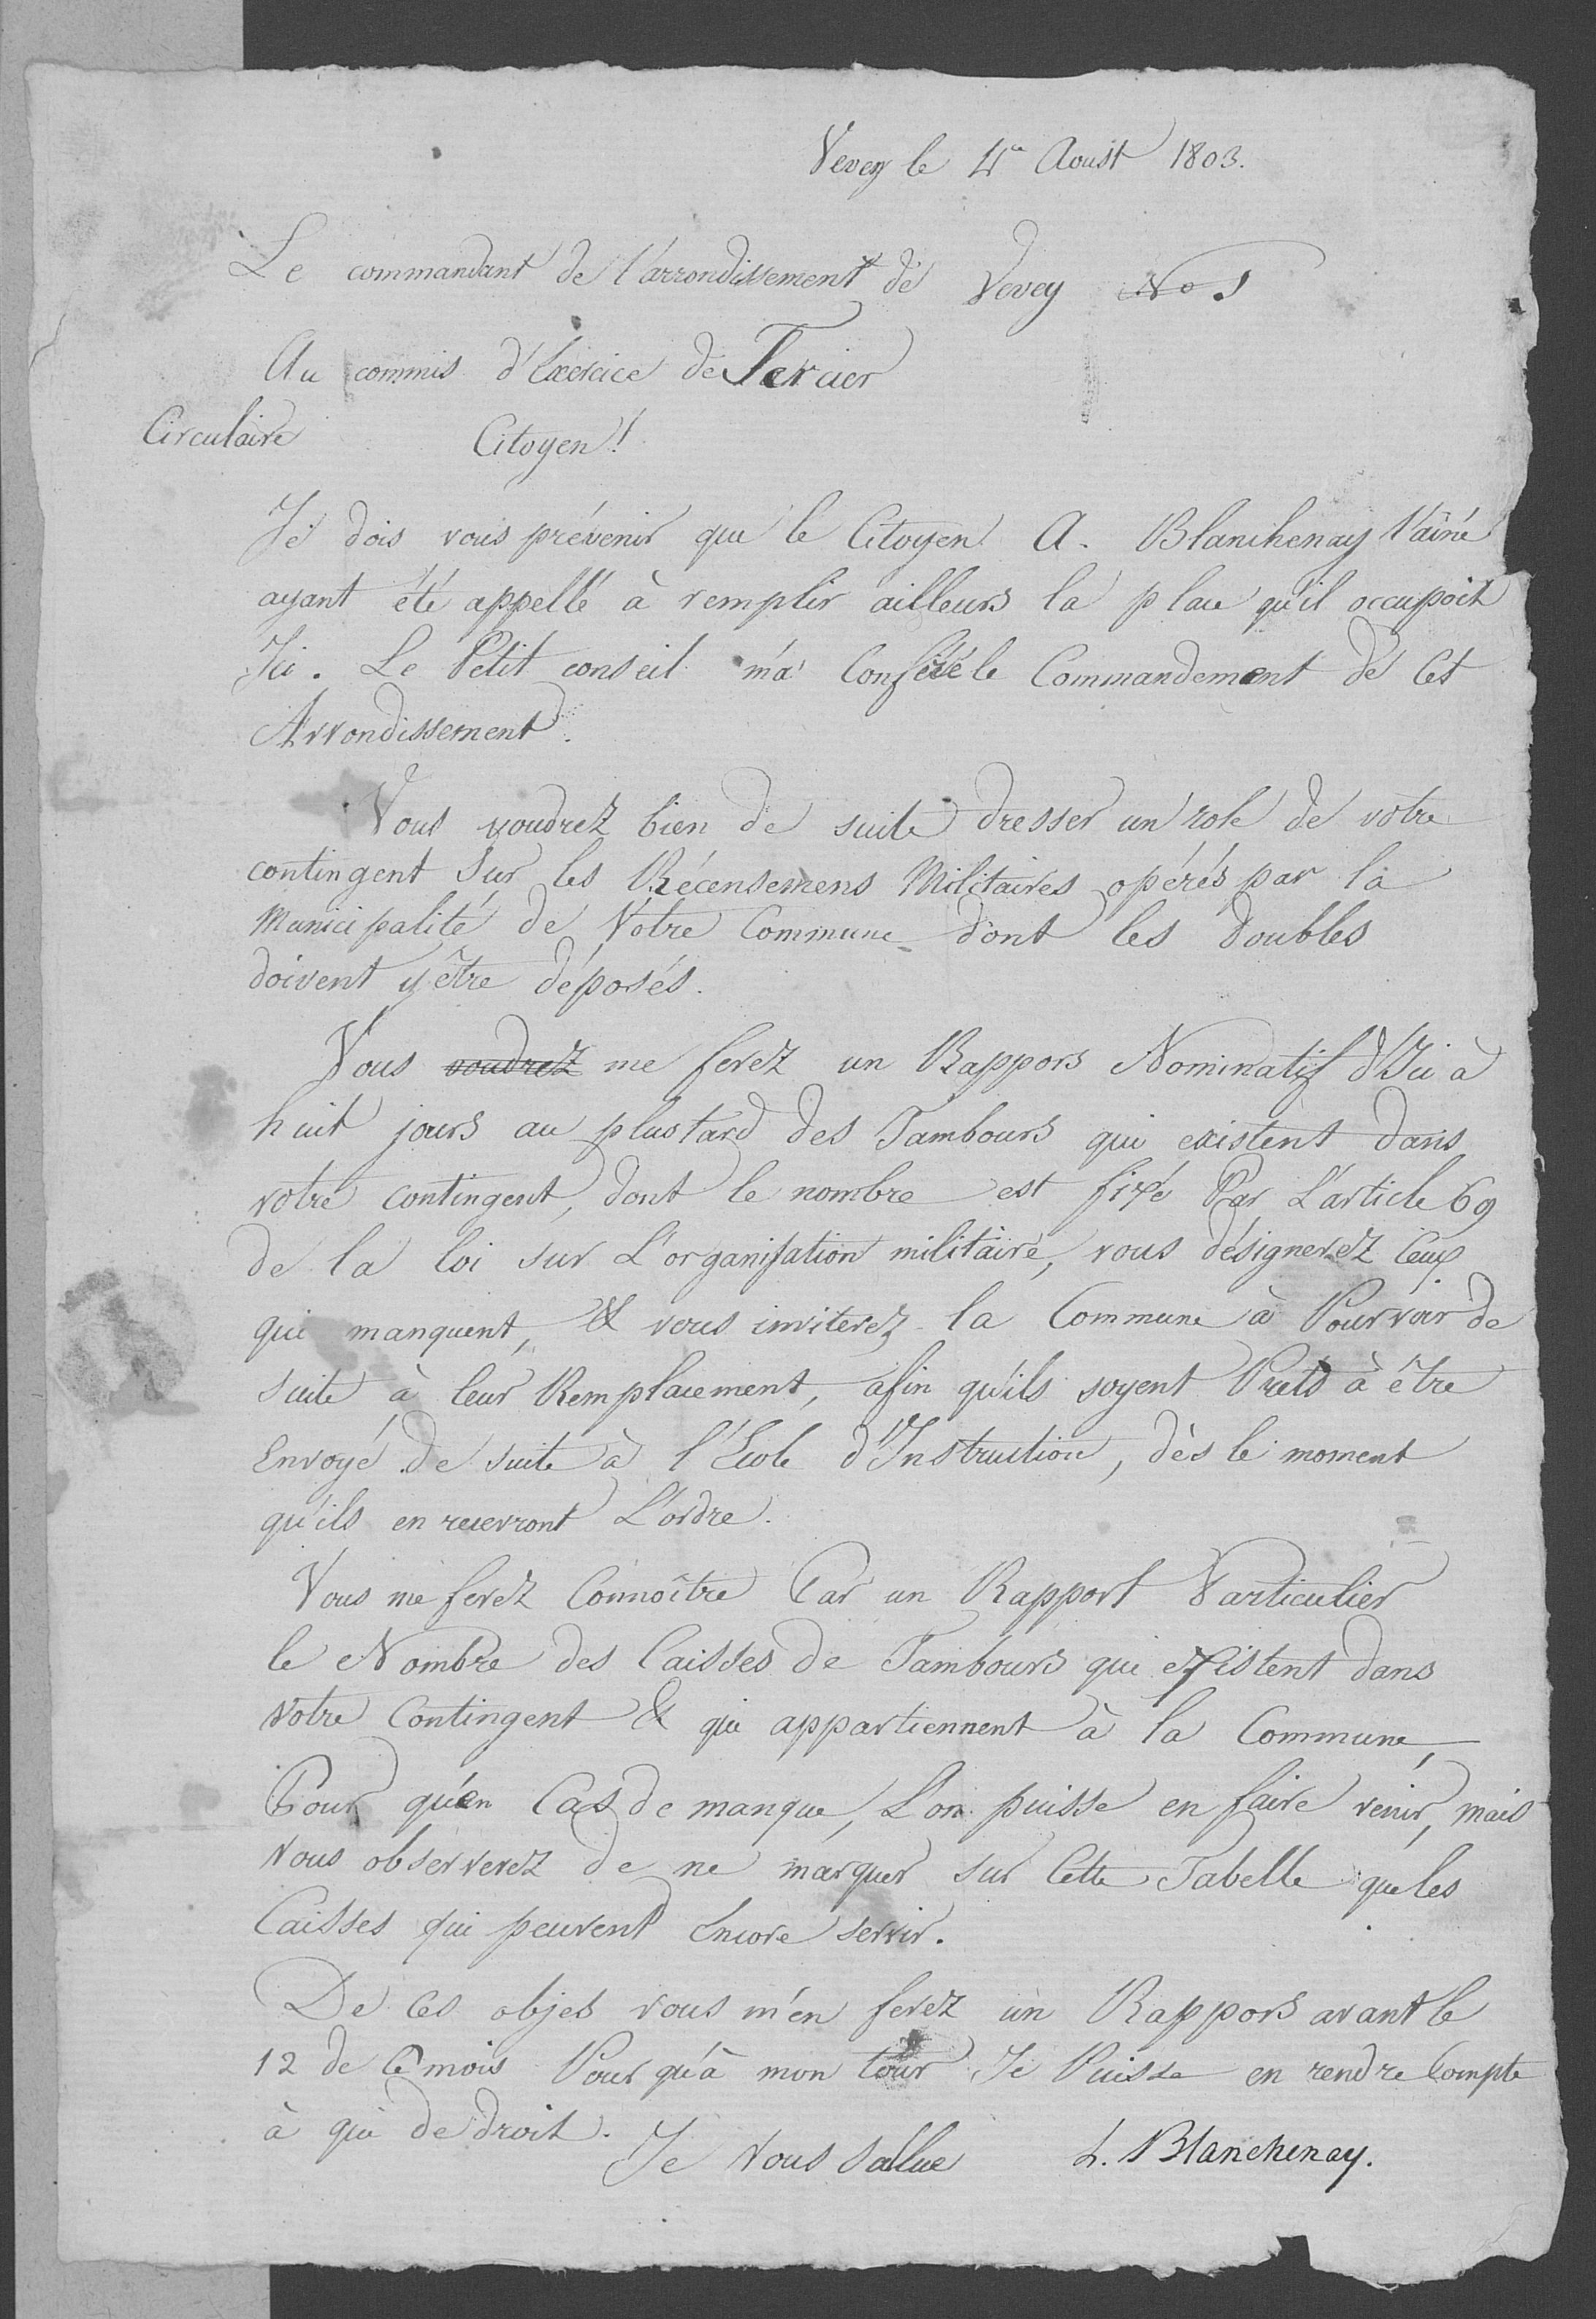 Vevey le 4e Aoust 1803.
Le commandant de l'arrondissement de Vevey No 1
Au commis d'Exercice de Tercier
Circulaire Citoyen!
Je dois vous prévenir que le Citoyen A. Blanchenay l'ainé
ayant été appellé à remplir ailleurs la place qu'il occupoit
Ici. Le Petit conseil m'a Conféré le Commandement de Cet
Arrondissement.
Vous voudrez bien de suite dresser un role de votre
contingent sur les Récensemens Militaires opérés par la
Municipalité de Votre Commune dont les doubles
doivent y être déposés.
Vous voudrez me ferez un Rappors Nominatif d'Ici à
huit jours au plustard des Tambours qui existent dans
votre contingent, dont le nombre est fixé Par L'article 69
de la loi sur L'organisation militaire, vous désignerez Ceux
qui manquent, & vous inviterez la Commune à Pourvoir de
suite à leur Remplacement, afin qu'ils soyent Prets à être
Envoyé de suite à l'Ecole d'Instruction, dès le moment
qu'ils en recevront L'ordre.
Vous me ferez Connoître Par un Rapport Particulier
le Nombre des Caisses de Tambours qui existent dans
Votre Contingent & qui appartiennent à la Commune,
Pour qu'en Cas de manque, L'on puisse en faire venir, mais
Vous observerez de ne marquer sur Cette Tabelle que les
Caisses qui peuvent Encore servir.
De Ces objets vous m'en ferez un Rappors avant le
12 de Ce mois Pour qu'à mon tour Je Puisse en rendre Compte
à qui de droit.
Je Vous Sallue L. Blanchenay.